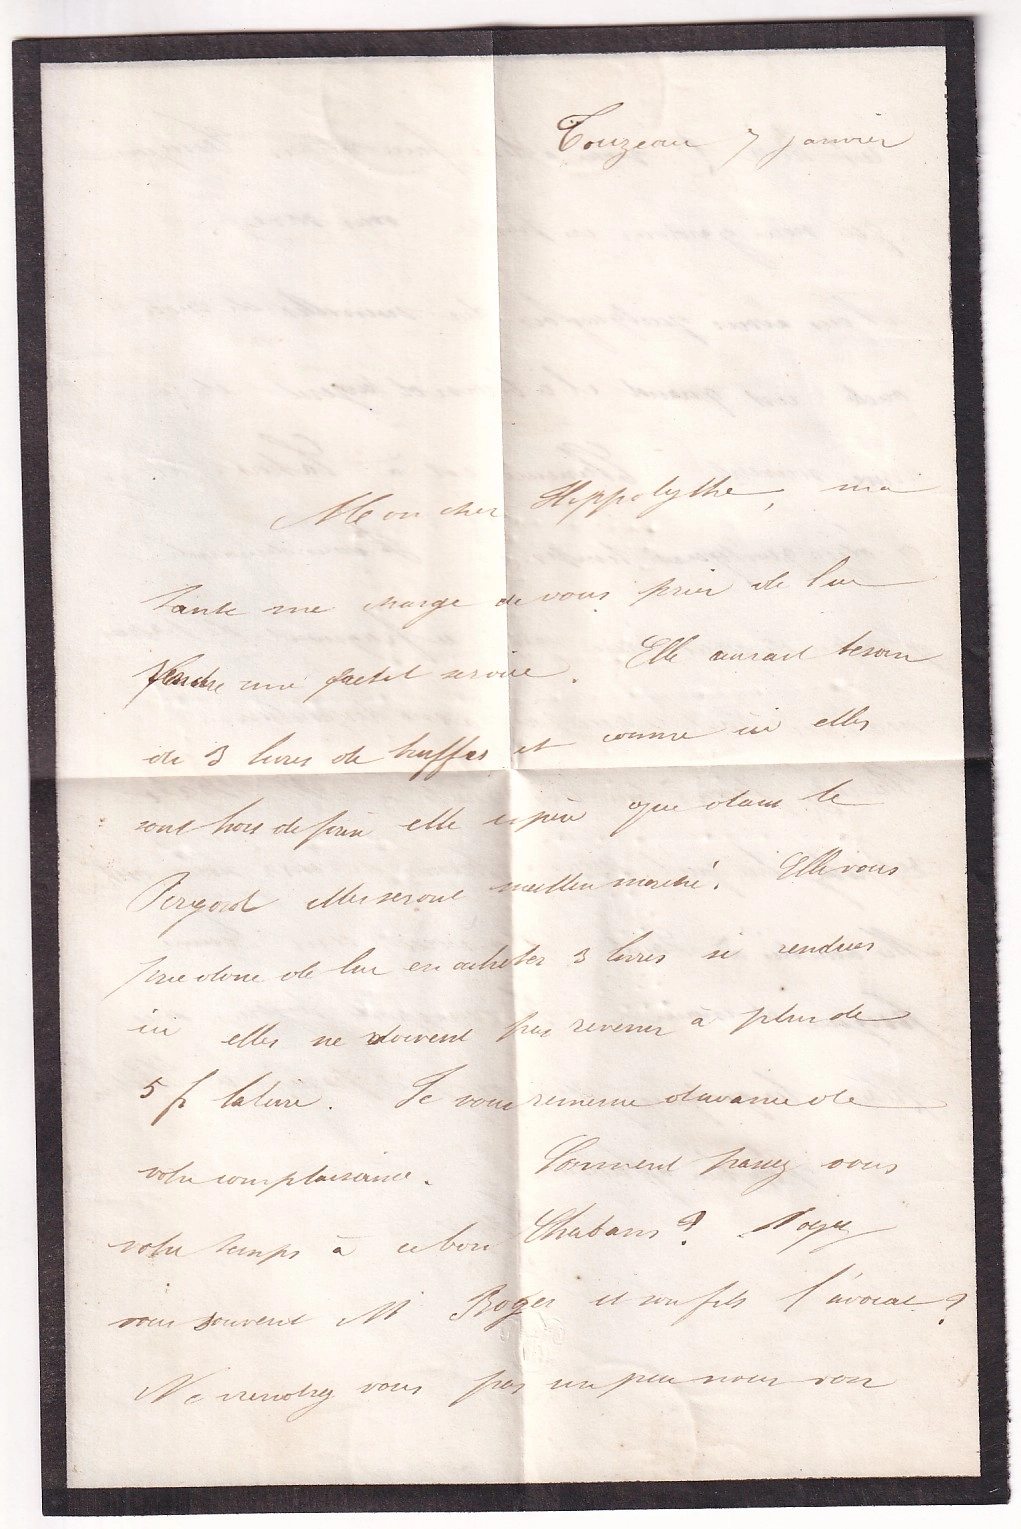 Touzeau 7 janvier
Mon cher Hyppolythe, ma
tante me charge de vous prier de lui
rendre un petit service. Elle aurait besoin
de 3 livres de truffes et comme ici elles
sont hors de prix elle espère que dans le
Perigord elles seront meilleur marché. Elle vous
prie donc de lui en acheter 3 livres si rendues
ici elles ne doivent pas revenir à plus de
5 f la livre. Je vous remercie d'avance de
votre complaisance. Comment passez vous
votre temps à ce bon Chabans? Voyez
vous souvent Mr Roger et son fils l'avocat?
Ne viendrez vous pas un peu nous voir